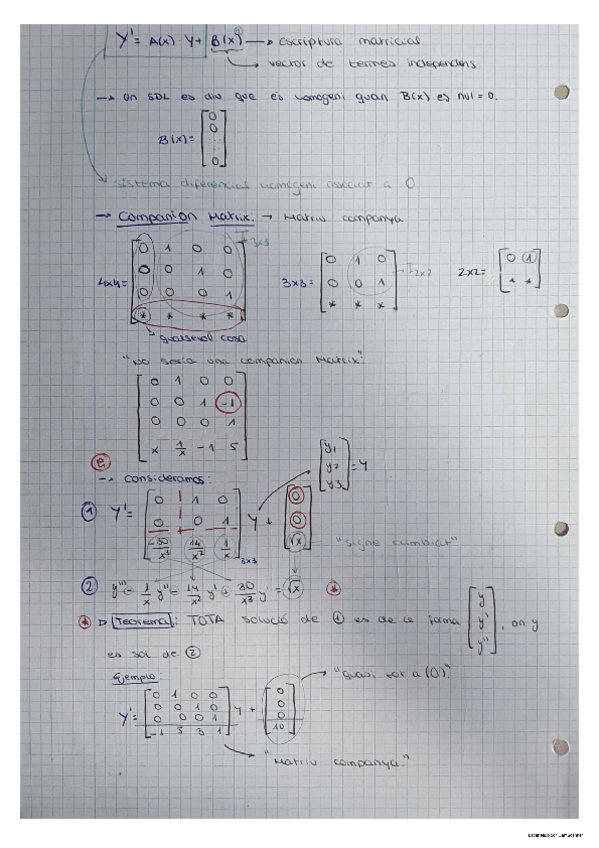 Y' = A(x) · Y + B(x) → Escriptura matricial
→ vector de termes independens
→ Un SDL es diu que és homogeni quan B(x) es nul = 0.
B(x) = [0 0 ... 0]
sistema diferencial homogeni associat a 0
→ Companion Matrix: → Matriu companya
4x4 = [0 1 0 0; 0 0 1 0; 0 0 0 1; * * * *] I 3x3
3x3 = [0 1 0; 0 0 1; * * *] I 2x2
2x2 = [0 1; * *]
qualsevol cosa
"No seria una companion matrix"
[0 1 0 0; 0 0 1 -1; 0 0 0 1; x 1/x -1 5]
e.
→ Consideramos:
[y1 y2 y3] = Y
1 Y' = [0 1 0; 0 0 1; -30/x³ 14/x² 1/x] 3x3 Y + [0 0 √x]
"signe cambiat"
2 y''' - 1/x y'' - 14/x² y' + 30/x³ y = √x *
* Teorema: TOTA solució de 1 es de la forma [y y' y''], on y
es sol de 2
Ejemplo:
Y' = [0 1 0 0; 0 0 1 0; 0 0 0 1; -1 5 3 1] Y + [0 0 0 10]
"quasi tot a (0)."
"Matriu companya."